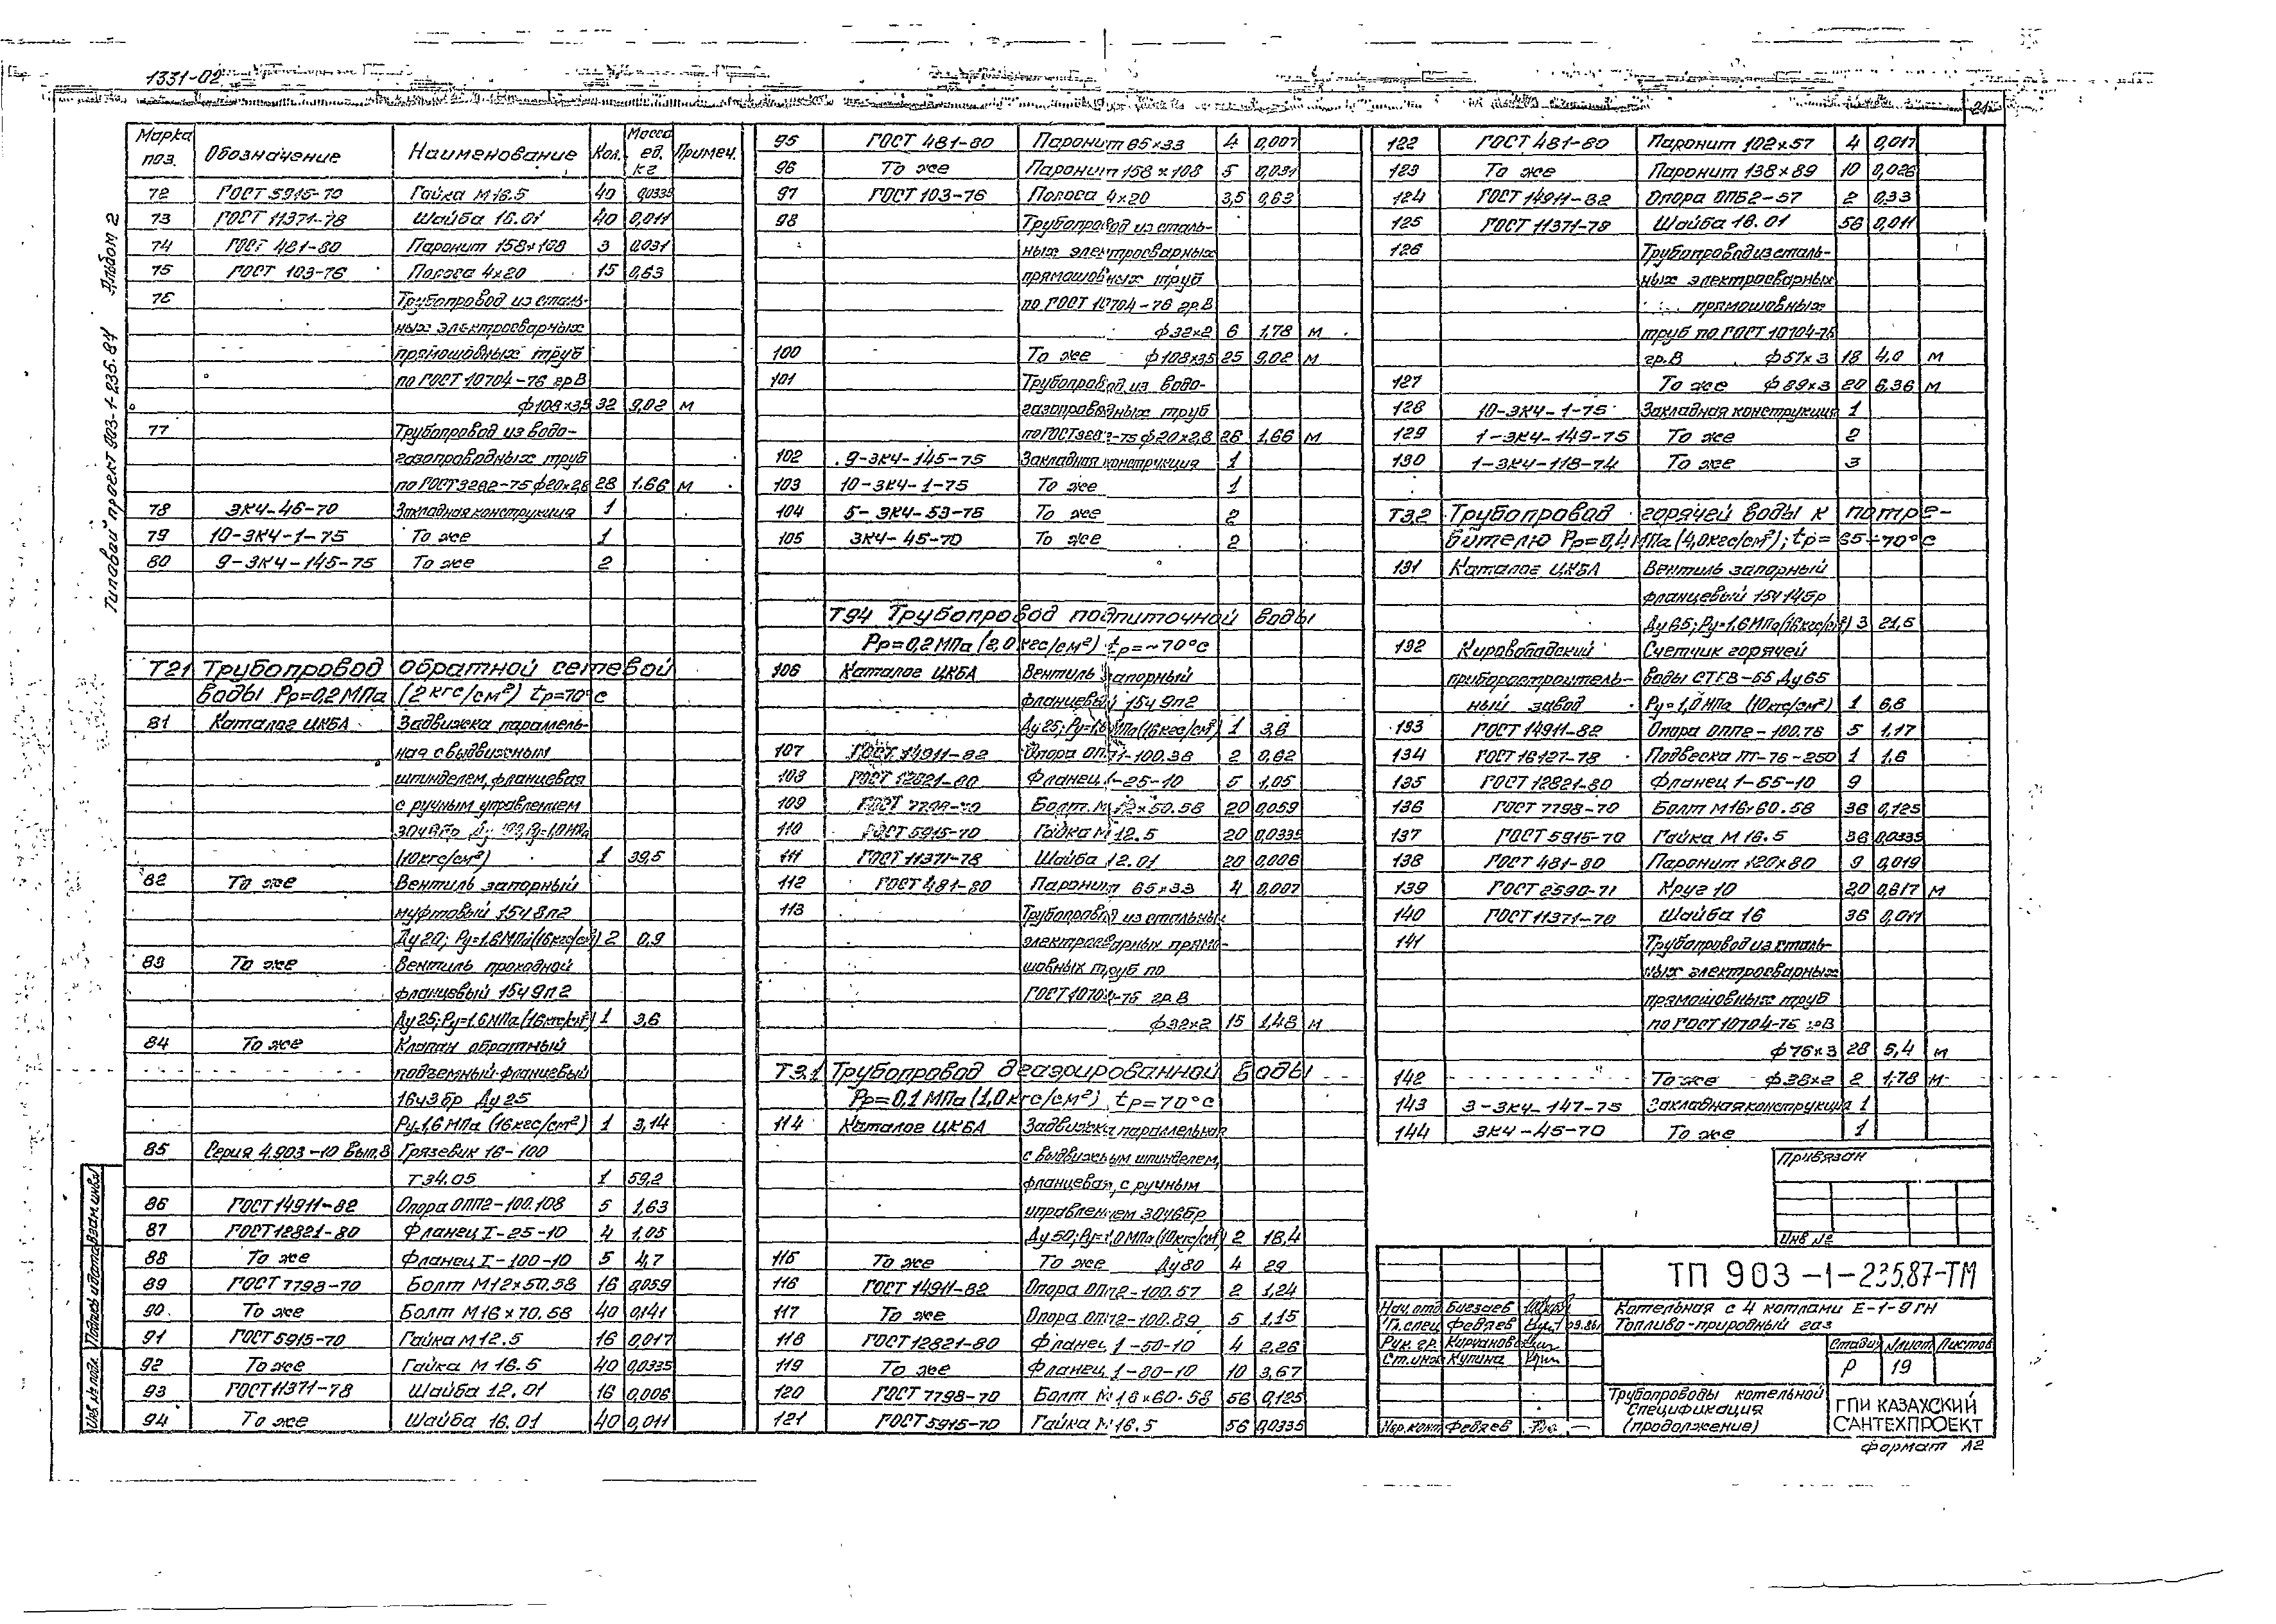 1331-02
Альбом 2
Типовой проект 903-1-235.84
Марка поз. Обозначение Наименование Кол. Масса ед. кг Примеч.
72 ГОСТ 5915-70 Гайка М16.5 40 0,0335
73 ГОСТ 11371-78 Шайба 16.01 40 0,011
74 ГОСТ 481-80 Паронит 158×108 3 0,031
75 ГОСТ 103-76 Полоса 4×20 15 0,63
76 Трубопровод из сталь-
ных электросварных
прямошовных труб
по ГОСТ 10704-76 гр.В
ф108×3,5 32 9,02 м
77 Трубопровод из водо-
газопроводных труб
по ГОСТ 3262-75 ф20×2,8 28 1,66 м
78 ЗКЧ-46-70 Закладная конструкция 1
79 10-ЗКЧ-1-75 То же 1
80 9-ЗКЧ-145-75 То же 2
Т21 Трубопровод обратной сетевой
воды Рр=0,2 МПа (2 кгс/см²) tр=70°с
81 Каталог ЦКБА Задвижка параллель-
ная с выдвижным
шпинделем, фланцевая
с ручным управлением
30ч6бр Ду 100 Ру=1,0 МПа
(10кгс/см²) 1 39,5
82 То же Вентиль запорный
муфтовый 15ч8п2
Ду20; Ру=1,6 МПа (16кгс/см²) 2 0,9
83 То же Вентиль проходной
фланцевый 15ч9п2
Ду25; Ру=1,6 МПа (16кгс/см²) 1 3,6
84 То же Клапан обратный
подъемный фланцевый
16ч3бр Ду 25
Ру1,6 МПа (16кгс/см²) 1 3,14
85 Серия 4.903-10 Вып.8 Грязевик 16-100
Т34.05 1 59,2
86 ГОСТ 14911-82 Опора ОПП2-100.108 5 1,63
87 ГОСТ 12821-80 Фланец I-25-10 4 1,05
88 То же Фланец I-100-10 5 4,7
89 ГОСТ 7798-70 Болт М12×50.58 16 0,059
90 То же Болт М16×70.58 40 0,141
91 ГОСТ 5915-70 Гайка М12.5 16 0,017
92 То же Гайка М 16.5 40 0,0335
93 ГОСТ 11371-78 Шайба 12.01 16 0,006
94 То же Шайба 16.01 40 0,011
95 ГОСТ 481-80 Паронит 65×33 4 0,007
96 То же Паронит 158×108 5 0,031
97 ГОСТ 103-76 Полоса 4×20 3,5 0,63
98 Трубопровод из сталь-
ных электросварных
прямошовных труб
по ГОСТ 10704-76 гр.В
ф32×2 6 1,78 м
100 То же ф108×3,5 25 9,02 м
101 Трубопровод из водо-
газопроводных труб
по ГОСТ 3262-75 ф20×2,8 26 1,66 м
102 9-ЗКЧ-145-75 Закладная конструкция 1
103 10-ЗКЧ-1-75 То же 1
104 5-ЗКЧ-53-76 То же 2
105 ЗКЧ-45-70 То же 2
Т94 Трубопровод подпиточной воды
Рр=0,2 МПа (2,0 кгс/см²) tр=~70°с
106 Каталог ЦКБА Вентиль запорный
фланцевый 15ч9п2
Ду25; Ру=1,6 МПа (16кгс/см²) 1 3,6
107 ГОСТ 14911-82 Опора ОПП1-100.38 2 0,62
108 ГОСТ 12821-80 Фланец 1-25-10 5 1,05
109 ГОСТ 7798-70 Болт М12×50.58 20 0,059
110 ГОСТ 5915-70 Гайка М12.5 20 0,0335
111 ГОСТ 11371-78 Шайба 12.01 20 0,006
112 ГОСТ 481-80 Паронит 65×33 4 0,007
113 Трубопровод из стальных
электросварных прямо-
шовных труб по
ГОСТ 10704-76 гр.В
ф32×2 15 1,48 м
Т3.1 Трубопровод деаэрированной воды
Рр=0,1 МПа (1,0 кгс/см²), tр=70°с
114 Каталог ЦКБА Задвижка параллельная
с выдвижным шпинделем,
фланцевая, с ручным
управлением 30ч6бр
Ду50; Ру=1,0 МПа (10кгс/см²) 2 18,4
115 То же То же Ду80 4 29
116 ГОСТ 14911-82 Опора ОПП2-100.57 2 1,24
117 То же Опора ОПП2-100.89 5 1,15
118 ГОСТ 12821-80 Фланец 1-50-10 4 2,26
119 То же Фланец 1-80-10 10 3,67
120 ГОСТ 7798-70 Болт М16×60.58 56 0,125
121 ГОСТ 5915-70 Гайка М16.5 56 0,0335
122 ГОСТ 481-80 Паронит 102×57 4 0,017
123 То же Паронит 138×89 10 0,026
124 ГОСТ 14911-82 Опора ОПБ2-57 2 0,33
125 ГОСТ 11371-78 Шайба 16.01 56 0,011
126 Трубопровод из сталь-
ных электросварных
прямошовных
труб по ГОСТ 10704-76
гр.В ф57×3 18 4,0 м
127 То же ф89×3 20 6,36 м
128 10-ЗКЧ-1-75 Закладная конструкция 1
129 1-ЗКЧ-149-75 То же 2
130 1-ЗКЧ-118-74 То же 3
Т3.2 Трубопровод горячей воды к потре-
бителю Рр=0,4 МПа (4,0кгс/см²); tр=65÷70°с
131 Каталог ЦКБА Вентиль запорный
фланцевый 15ч14бр
Ду65; Ру=1,6 МПа (16кгс/см²) 3 21,5
132 Кировабадский Счетчик горячей
приборостроитель- воды СТГВ-65 Ду65
ный завод Ру=1,0 МПа (10кгс/см²) 1 6,8
133 ГОСТ 14911-82 Опора ОПП2-100.76 5 1,17
134 ГОСТ 16127-78 Подвеска ПГ-76-250 1 1,6
135 ГОСТ 12821-80 Фланец 1-65-10 9
136 ГОСТ 7798-70 Болт М16×60.58 36 0,125
137 ГОСТ 5915-70 Гайка М 16.5 36 0,0335
138 ГОСТ 481-80 Паронит 120×80 9 0,019
139 ГОСТ 2590-71 Круг 10 20 0,617 м
140 ГОСТ 11371-70 Шайба 16 36 0,011
141 Трубопровод из сталь-
ных электросварных
прямошовных труб
по ГОСТ 10704-76 гр.В
ф76×3 28 5,4 м
142 То же ф38×2 2 1,78 м
143 3-ЗКЧ-147-75 Закладная конструкция 1
144 ЗКЧ-45-70 То же 1
Привязан
Инв №
ТП 903-1-235.87-ТМ
Котельная с 4 котлами Е-1-9ГН
Топливо-природный газ
Нач. отд.
Гл. спец. Федяев
Рук. гр.
Ст. инж. Купина
Нор. конт. Федяев
Стадия Лист Листов
Р 19
Трубопроводы котельной
Спецификация
(продолжение)
ГПИ КАЗАХСКИЙ
САНТЕХПРОЕКТ
формат А2
Взам. инв. №
Подпись и дата
Инв. № подл.